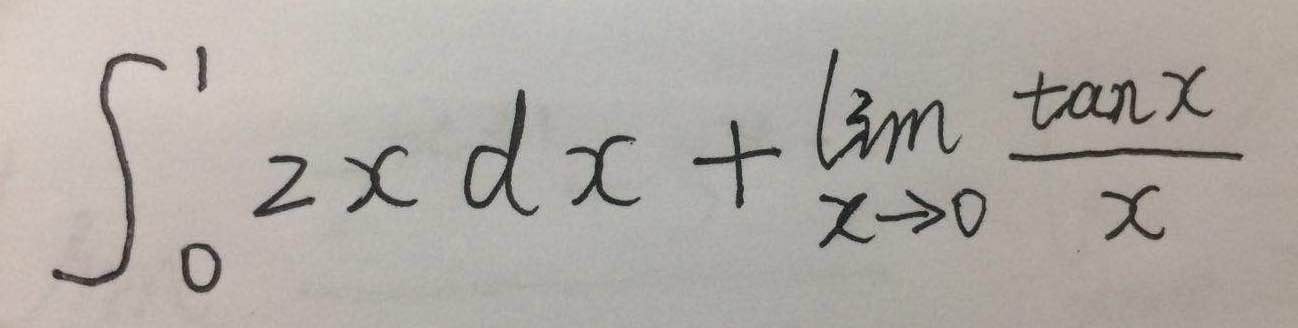 ∫₀¹ 2x dx + lim_{x→0} \frac{tan x}{x}